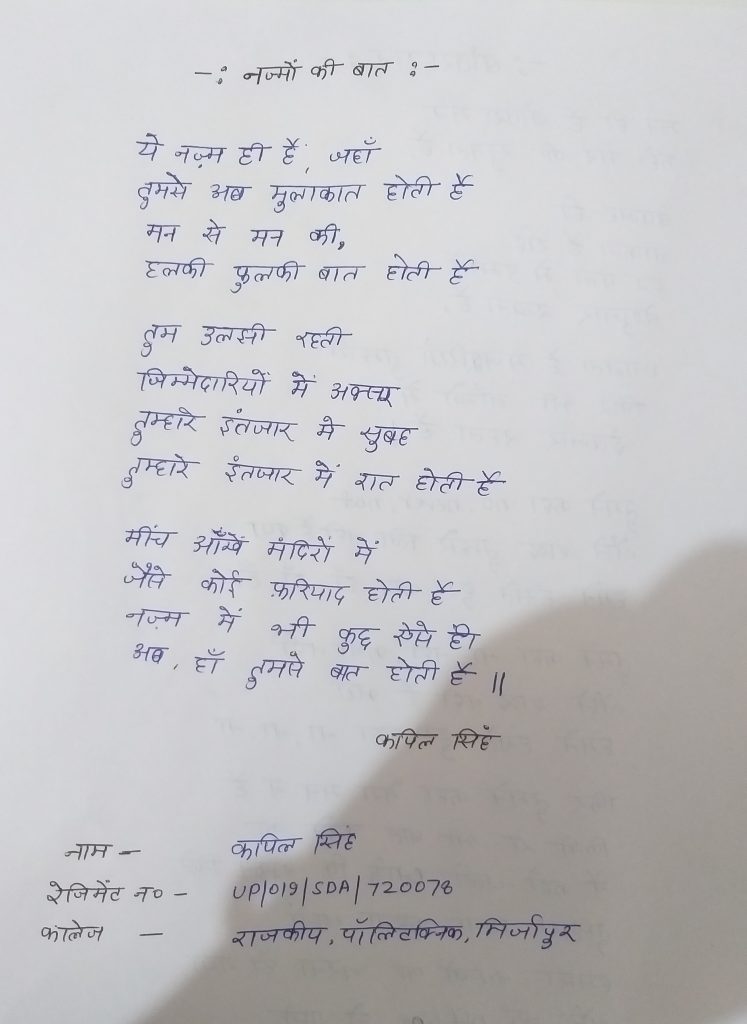 -: नज्मों की बात :-
ये नज़्म ही है, जहाँ
तुमसे अब मुलाकात होती है
मन से मन की,
हलकी फुलकी बात होती है
तुम उलझी रहती
जिम्मेदारियों में अक्सर
तुम्हारे इंतजार मे सुबह
तुम्हारे इंतजार में रात होती है
मींच आँखें मंदिरों में
जैसे कोई फ़रियाद होती है
नज़्म में भी कुछ ऐसे ही
अब, हाँ तुमसे बात होती है ॥
कपिल सिंह
नाम - कपिल सिंह
रेजिमेंट न० - UP/019/SDA/720078
कालेज - राजकीय, पॉलिटेक्निक, मिर्जापुर